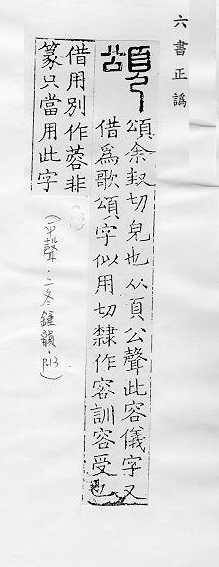 六書正譌
頌余封切皃也从頁公聲此容儀字又
借爲歌頌字似用切隸作容訓容受
借用別作蓉非
篆只當用此字
(平聲·二冬鍾韻·P.13)